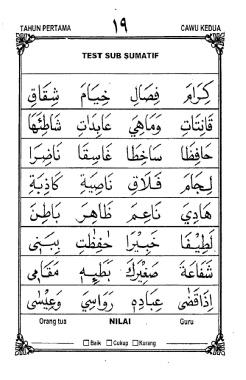 TAHUN PERTAMA ١٩ CAWU KEDUA
TEST SUB SUMATIF
كِرَامَ فِصَالٍ خِيَامَ شِقَاقٍ
قَانِتَاتٍ وَمَاهِيَ عَابِدَاتٍ شَاطِئِهَا
حَافِظًا سَاخِطًا غَاسِقًا نَاضِرًا
لِجَامَ فَلَاقٍ نَاصِيَةٍ كَاذِبَةٍ
هَادِيَ نَاعِمَ ظَاهِرَ بَاطِنَ
لَطِيْفًا خَبِيْرًا حٰفِظٰتٍ بِبَنِى
شَفَاعَةَ صَغِيْرِكَ بَطَنِهٖ مَقَامِى
إِذَاقَضٰى عِبَادِهٖ رَوَاسِيَ وَعِيْسٰى
Orang tua NILAI Guru
Baik Cukup Kurang